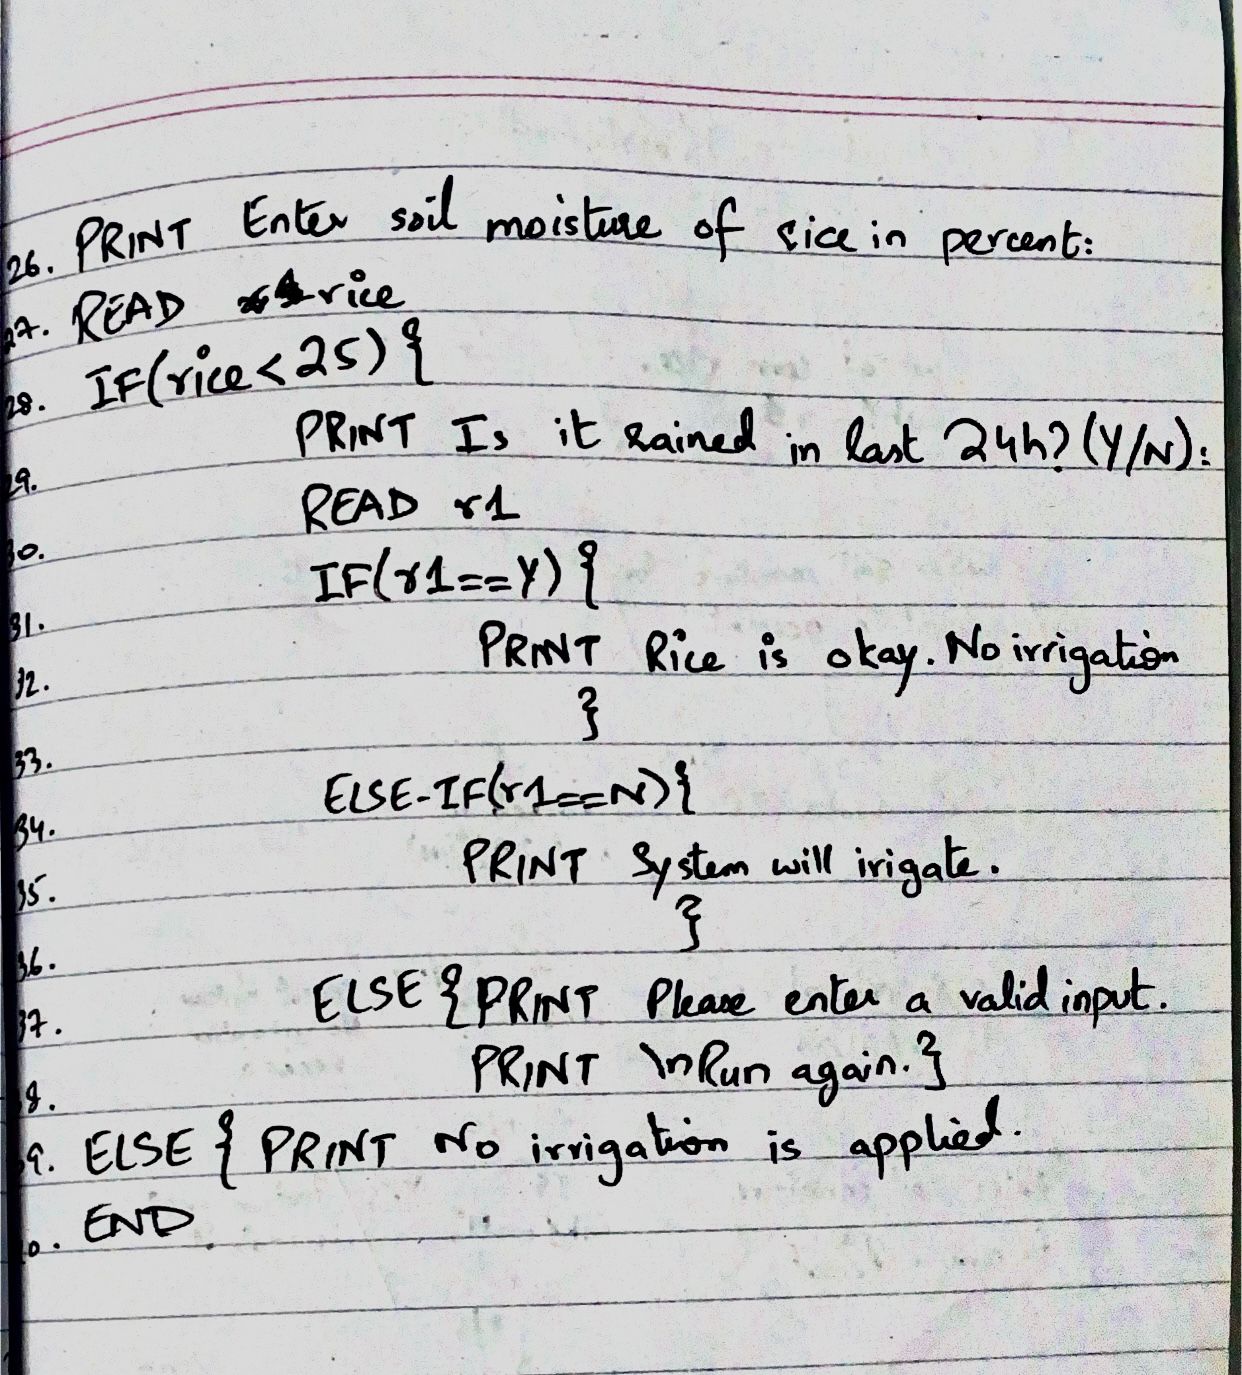 26. PRINT Enter soil moisture of rice in percent:
27. READ rice
28. IF(rice<25){
29. PRINT Is it rained in last 24h? (Y/N):
30. READ r1
31. IF(r1==Y){
32. PRINT Rice is okay. No irrigation
33. }
34. ELSE-IF(r1==N){
35. PRINT System will irigate.
36. }
37. ELSE{PRINT Please enter a valid input.
8. PRINT \nRun again.}
9. ELSE { PRINT No irrigation is applied.
0. END